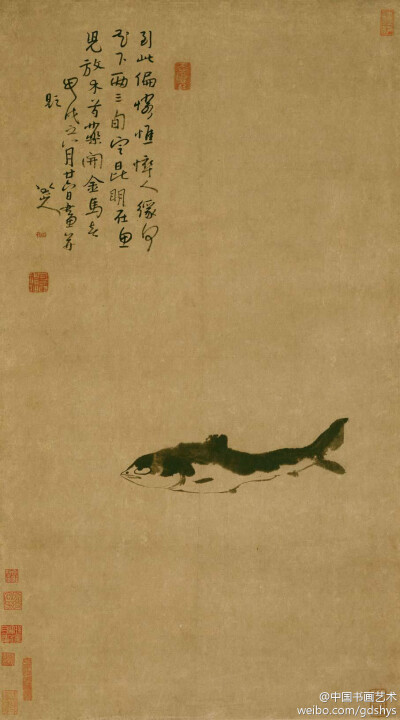 到此偏憐憔悴人緣何
花下兩三旬定昆明在魚
兒放木芍藥開金馬春
甲戌之八月廿六日畫并
題
八大山人
@中国书画艺术
weibo.com/gdshys